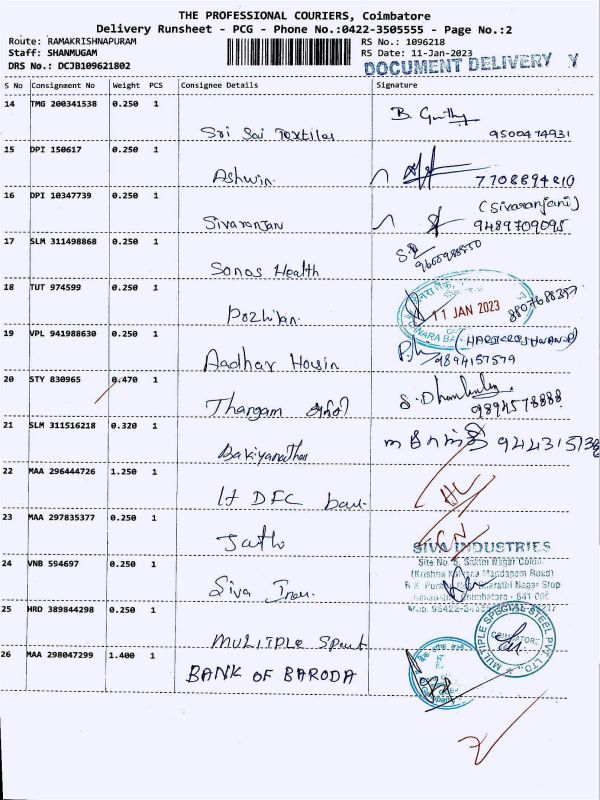 THE PROFESSIONAL COURIERS, Coimbatore
Delivery Runsheet - PCG - Phone No.:0422-3505555 - Page No.:2
Route: RAMAKRISHNAPURAM
RS No.: 1096218
Staff: SHANMUGAM
RS Date: 11-Jan-2023
DRS No.: DCJB109621802
DOCUMENT DELIVERY Y
S No Consignment No Weight PCS Consignee Details Signature
14 TMG 200341538 0.250 1
Sri Sai Textiles 9500474931
15 DPI 150617 0.250 1
Ashwin 7708894210
16 DPI 10347739 0.250 1
(Sivaranjani)
Sivaranjan 9489709095
17 SLM 311498868 0.250 1
Sonas Health
18 TUT 974599 0.250 1
11 JAN 2023
Pozhilan
19 VPL 941988630 0.250 1
Aadhar Housin 9894157579
20 STY 830965 0.470 1
Thangam 9894578888
21 SLM 311516218 0.320 1
Bakiyanathan
22 MAA 296444726 1.250 1
HL
23 MAA 297835377 0.250 1
CN
SIVA INDUSTRIES
24 VNB 594697 0.250 1
Siva
25 HRD 389844298 0.250 1
MULTIPLE SPECIAL STEEL PVT. LTD.
COIMBATORE
MULIIPLE
26 MAA 298047299 1.400 1
BANK OF BARODA